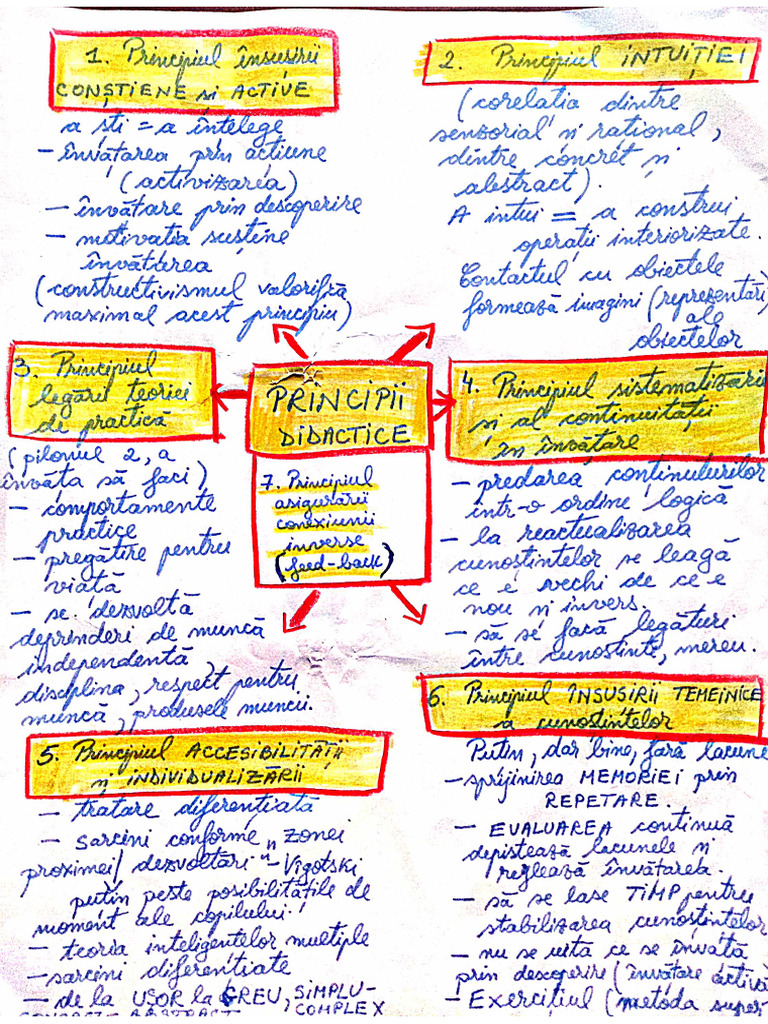 1. Principiul însusirii
CONȘTIENE si ACTIVE
a ști = a întelege
- învătarea prin actiune
(activizarea)
- învătare prin descoperire
- motivatia sustine
învătarea
(constructivismul valorifică
maximal acest principiu)
2. Principiul INTUIȚIEI
(corelatia dintre
senzorial si rational,
dintre concret si
abstract).
A intui = a construi
operații interiorizate.
Contactul cu obiectele
formează imagini (reprezentări)
ale
obiectelor
PRINCIPII
DIDACTICE
3. Principiul
legării teoriei
de practică
(pilonul 2, a
învăta să faci)
- comportamente
practice
- pregătire pentru
viată
- se dezvoltă
deprinderi de muncă
independentă,
disciplina, respect pentru
muncă, produsele muncii.
4. Principiul sistematizării
si al continuitații
în învătare
- predarea conținuturilor
într-o ordine logică
- la reactualizarea
cunoștintelor se leagă
ce e vechi de ce e
nou si invers.
- să se facă legături
între cunostinte, mereu.
7. Principiul
asigurării
conexiunii
inverse
(feed-back)
5. Principiul ACCESIBILITĂȚII
si INDIVIDUALIZĂRII
- tratare diferentiată
- sarcini conforme "zonei
proximei dezvoltări" - Vigotski
putin peste posibilitățile de
moment ale copilului!
- teoria inteligentelor multiple
- sarcini diferentiate
- de la UȘOR la GREU, SIMPLU-
COMPLEX
CONCRET - ABSTRACT
6. Principiul ÎNSUSIRII TEMEINICE
a cunostintelor
Putin, dar bine, fără lacune
- sprijinirea MEMORIEI prin
REPETARE.
- EVALUAREA continuă
depistează lacunele si
reglează învătarea.
- să se lase TIMP pentru
stabilizarea cunostintelor
- nu se uita ce se învată
prin descoperire (învătare activă
- Exercițiul (metoda super